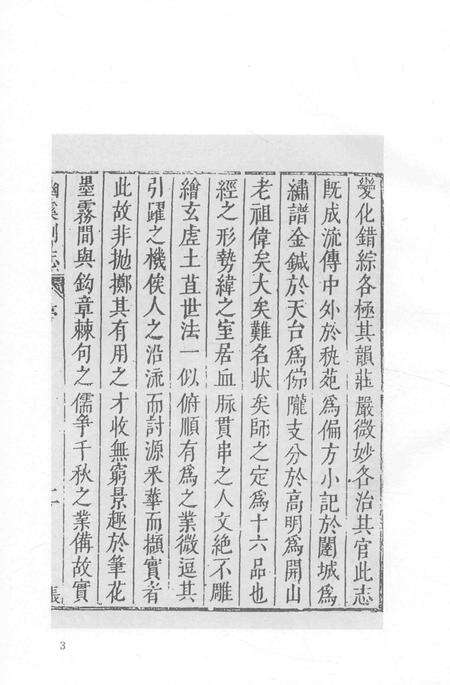 變化錯綜各極其韻莊嚴微妙各治其官此志
既成流傳中外於秇苑爲偏方小記於闉城爲
繡譜金鍼於天台爲佛隴支分於高明爲開山
老祖偉矣大矣難名狀矣師之定爲十六品也
經之形勢緯之室居血脉貫串之人文絶不雕
繪玄虗土苴世法一似俯順有爲之業微逗其
引躍之機俟人之沿流而討源釆華而擷實者
此故非抛擲其有用之才收無窮景趣於筆花
墨霧間與鈎章棘句之儒爭千秋之業備故實
幽溪別志 序 二 長
3